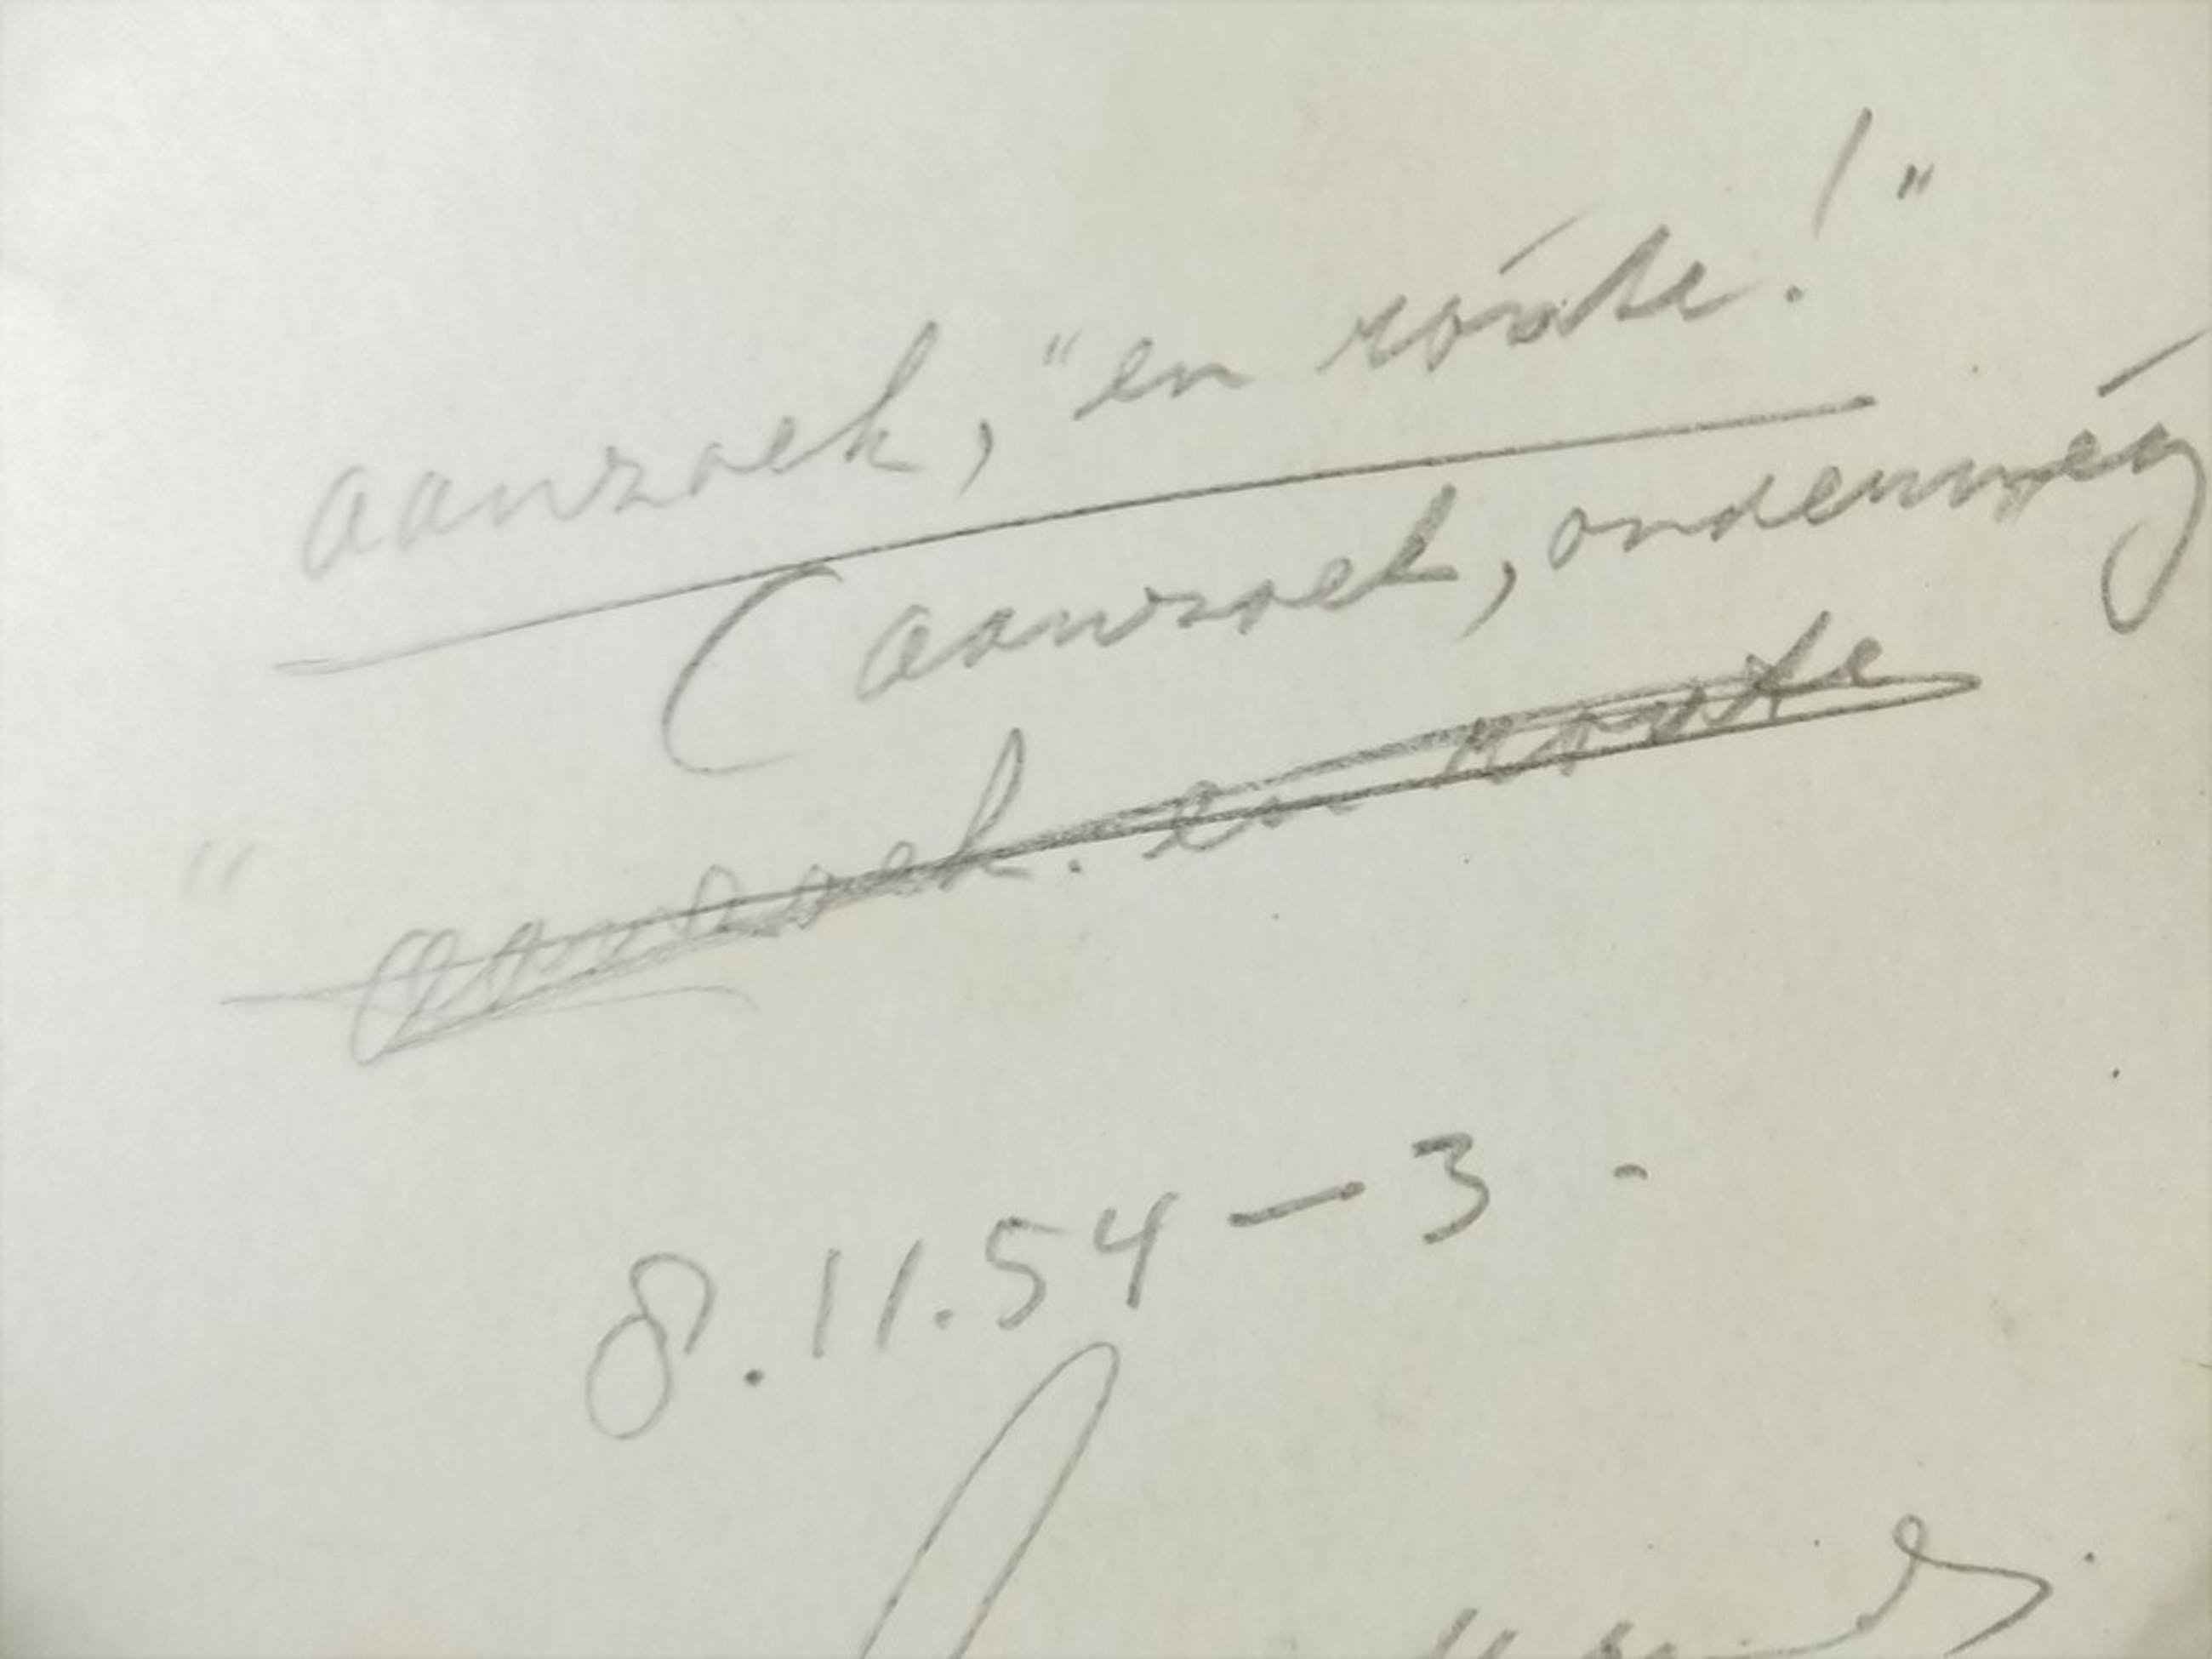 aanzoek, "en roúte!"
(aanzoek, onderwég
" aanzoek. en route
8.11.54 — 3 -